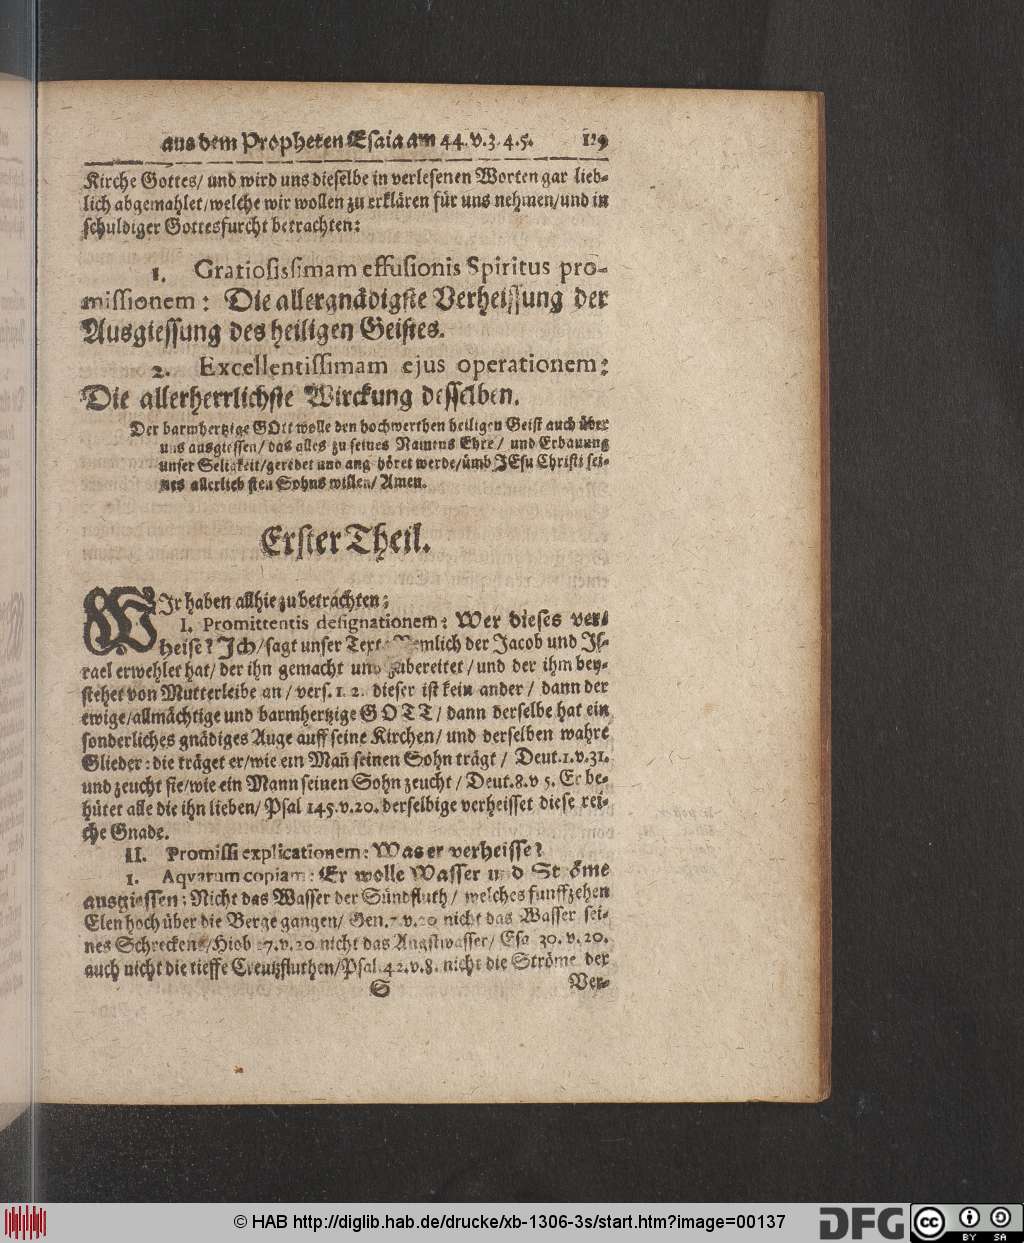 aus dem Propheten Esaia am 44. v. 3. 4. 5. 129
Kirche Gottes/ und wird uns dieselbe in verlesenen Worten gar lieb-
lich abgemahlet/ welche wir wollen zu erklären für uns nehmen/ und in
schuldiger Gottesfurcht betrachten:
1. Gratiosissimam effusionis Spiritus pro-
missionem: Die allergnädigste Verheissung der
Ausgiessung des heiligen Geistes.
2. Excellentissimam ejus operationem:
Die allerherrlichste Wirckung desselben.
Der barmhertzige GOtt wolle den hochwerthen heiligen Geist auch über
uns ausgiessen/ das alles zu seines Namens Ehre/ und Erbauung
unser Seligkeit/ geredet und angehöret werde/ ümb JEsu Christi sei-
nes allerliebsten Sohns willen/ Amen.
Erster Theil.
WIr haben allhie zu betrachten;
I. Promittentis designationem: Wer dieses ver-
heise? Ich/ sagt unser Text: Nemlich der Jacob und Is-
rael erwehlet hat/ der ihn gemacht und zubereitet/ und der ihm bey-
stehet von Mutterleibe an/ vers. 1. 2. dieser ist kein ander/ dann der
ewige/ allmächtige und barmhertzige GOTT/ dann derselbe hat ein
sonderliches gnädiges Auge auff seine Kirchen/ und derselben wahre
Glieder: die träget er/ wie ein Mañ seinen Sohn trägt/ Deut. 1. v. 31.
und zeucht sie/ wie ein Mann seinen Sohn zeucht/ Deut. 8. v 5. Er be-
hütet alle die ihn lieben/ Psal 145. v. 20. derselbige verheisset diese rei-
che Gnade.
II. Promissi explicationem: Was er verheisse?
1. Aqvarum copiam: Er wolle Wasser und Ströme
ausgiessen: Nicht das Wasser der Sündfluth/ welches funffzehen
Elen hoch über die Berge gangen/ Gen. 7. v. 20 nicht das Wasser sei-
nes Schreckens/ Hiob 27. v. 20 nicht das Angstwasser/ Esa 30. v. 20.
auch nicht die tieffe Creutzfluthen/ Psal. 42. v. 8. nicht die Ströme der
S Ver-
© HAB http://diglib.hab.de/drucke/xb-1306-3s/start.htm?image=00137
DFG cc BY SA